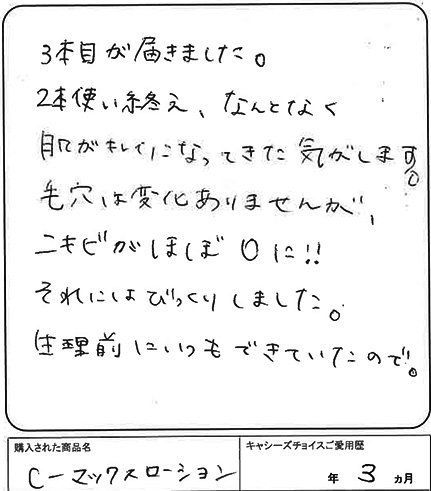 3本目が届きました。
2本使い終え、なんとなく
肌がキレイになってきた気がします。
毛穴は変化ありませんが、
ニキビがほぼほぼ0に!!
それにはびっくりしました。
生理前にいつもできていたので。
購入された商品名
キャシーズチョイスご愛用歴
C-マックスローション
年 3 ヵ月